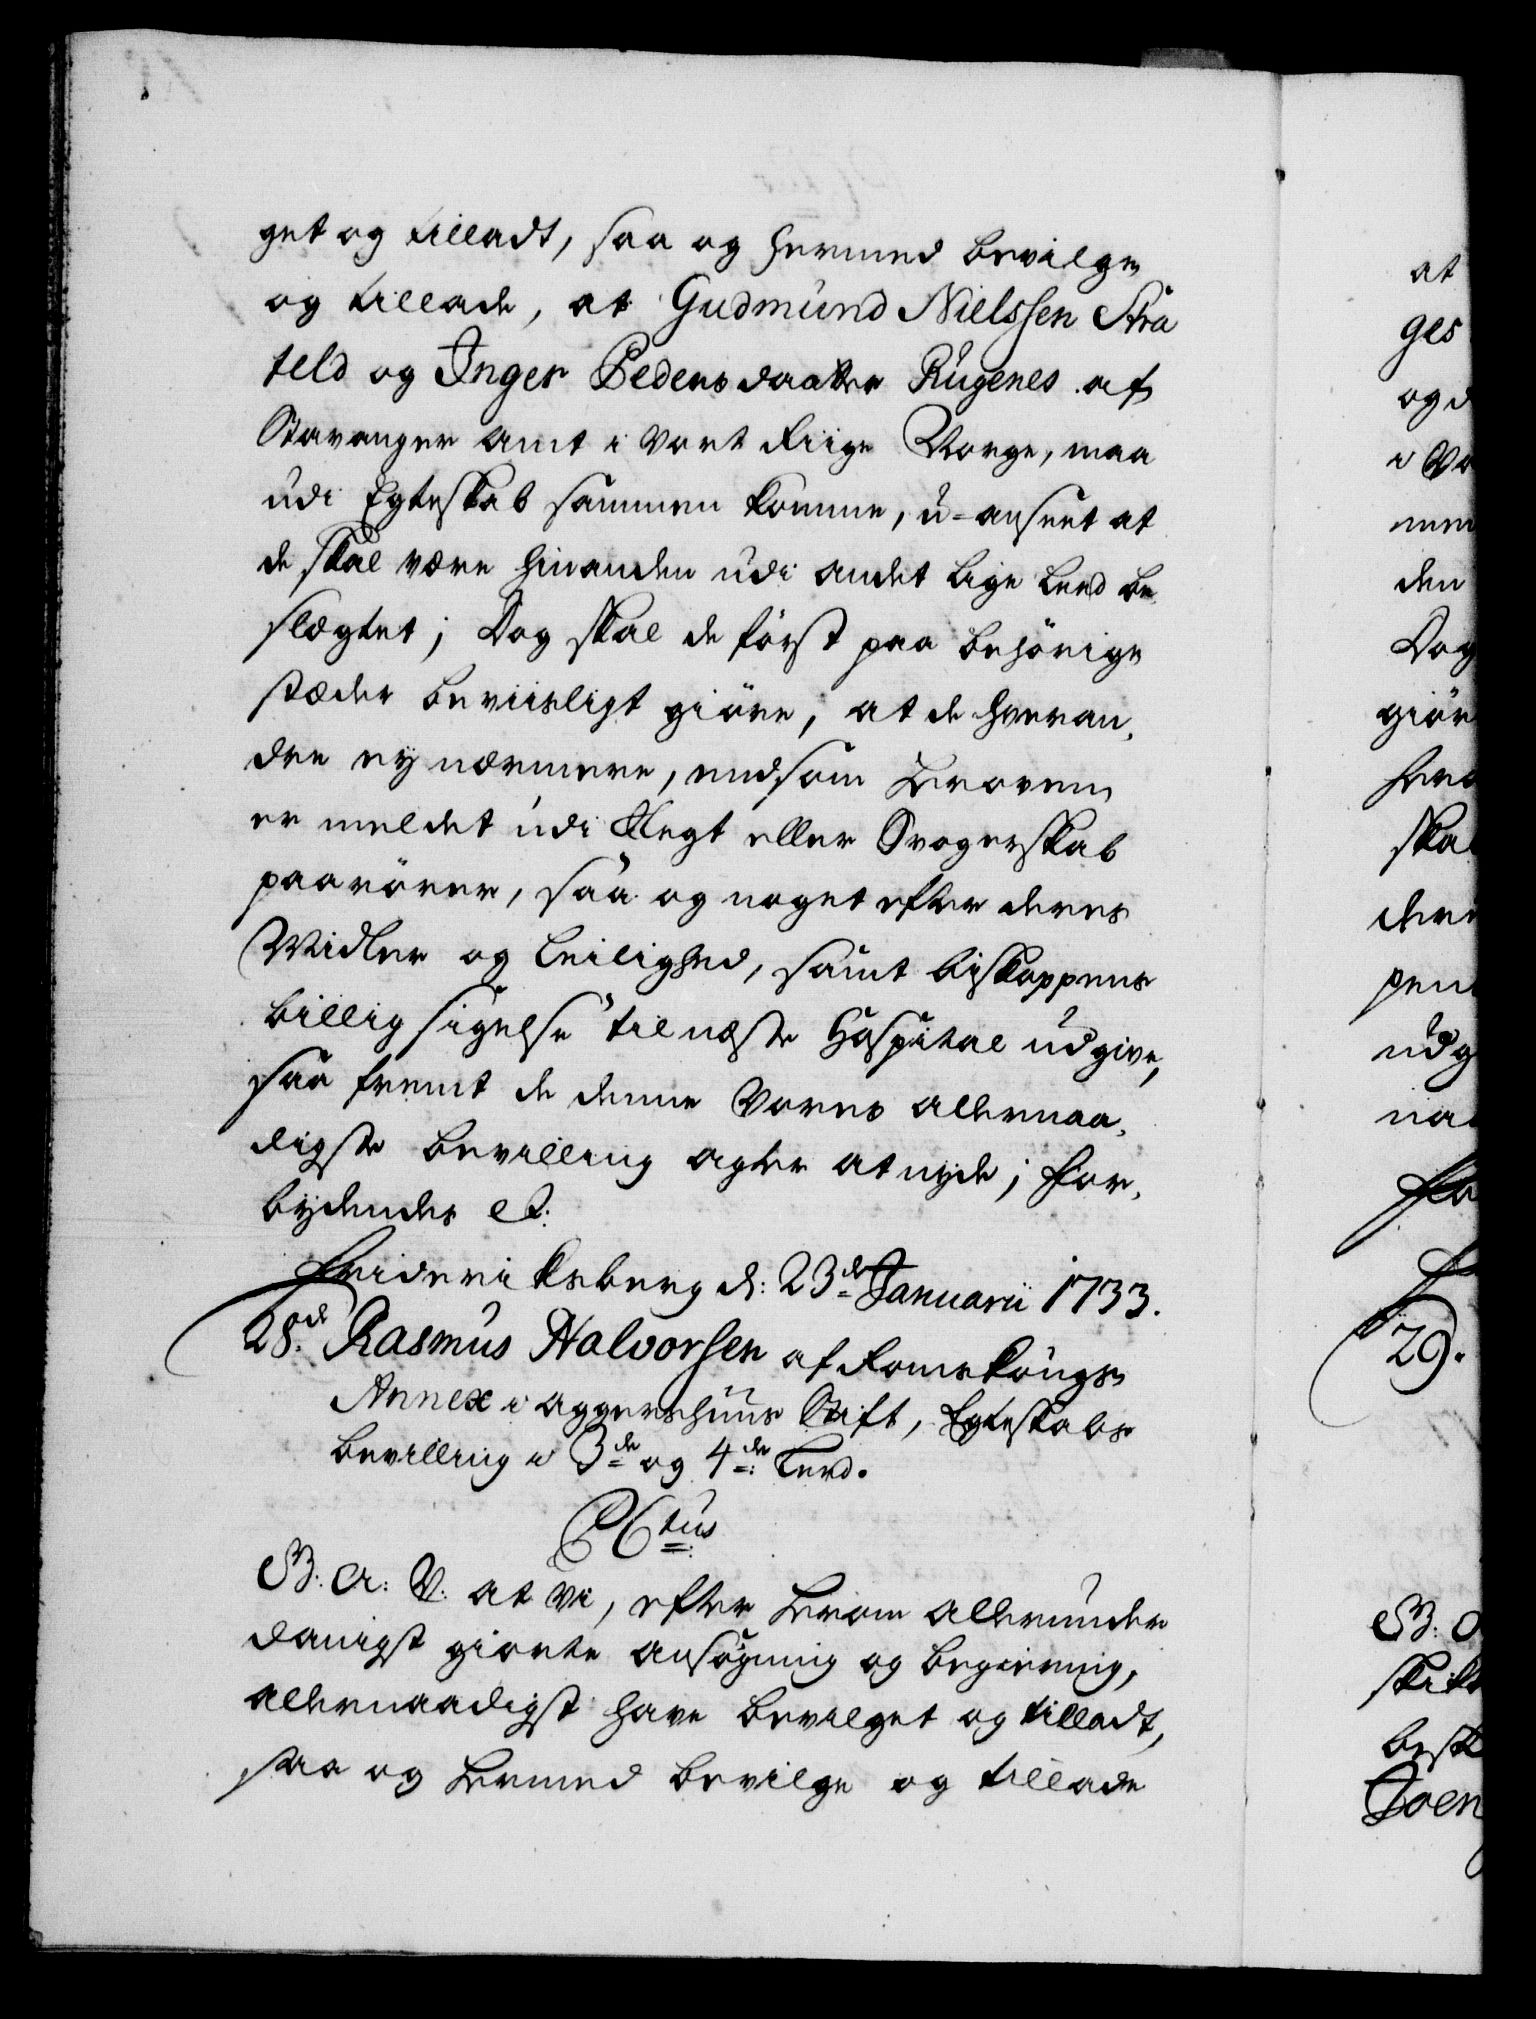 get og tilladt, saa og hermed bevilge
og tillade, at Gudmund Nielssen Ara
teld og Inger Pedersdaatter Rugenes af
Stavanger Amt i Vort Riige Norge, maa
udi Egteskab sammen komme, u-anseet at
de skal være hinanden udi andet lige Leed be
slægtet; Dog skal de først paa behörige
stæder beviisligt giöre, at de hveran,
dre ey nærmere, end som heroven
er meldet udi Slegt eller Svogerskab
paarörer, saa og noget efter deres
Midler og Leilighed, samt biskoppens
billig sigelse til næste Hospital udgive,
saa fremt de denne Vores allernaa,
digste bevilling agter at nyde; For,
bydendes etc:
Friderichsberg d: 23de Januarii 1733.
28de Rasmus Halvorsen af Romskougs
Annex i Aggershuus Stift, Egteskabs
bevilling i 3de og 4de Leed.
C 6tus
G: A: V: at Vi, efter herom allerunder
danigst giorte ansögning og begiering,
allernaadigst have bevilget og tilladt,
saa og hermed bevilge og tillade
at
ges
og d
i Vo
den
Dog
giör
skal
dere
pen
udg
naa
For
29.
G: A
besk
Joen